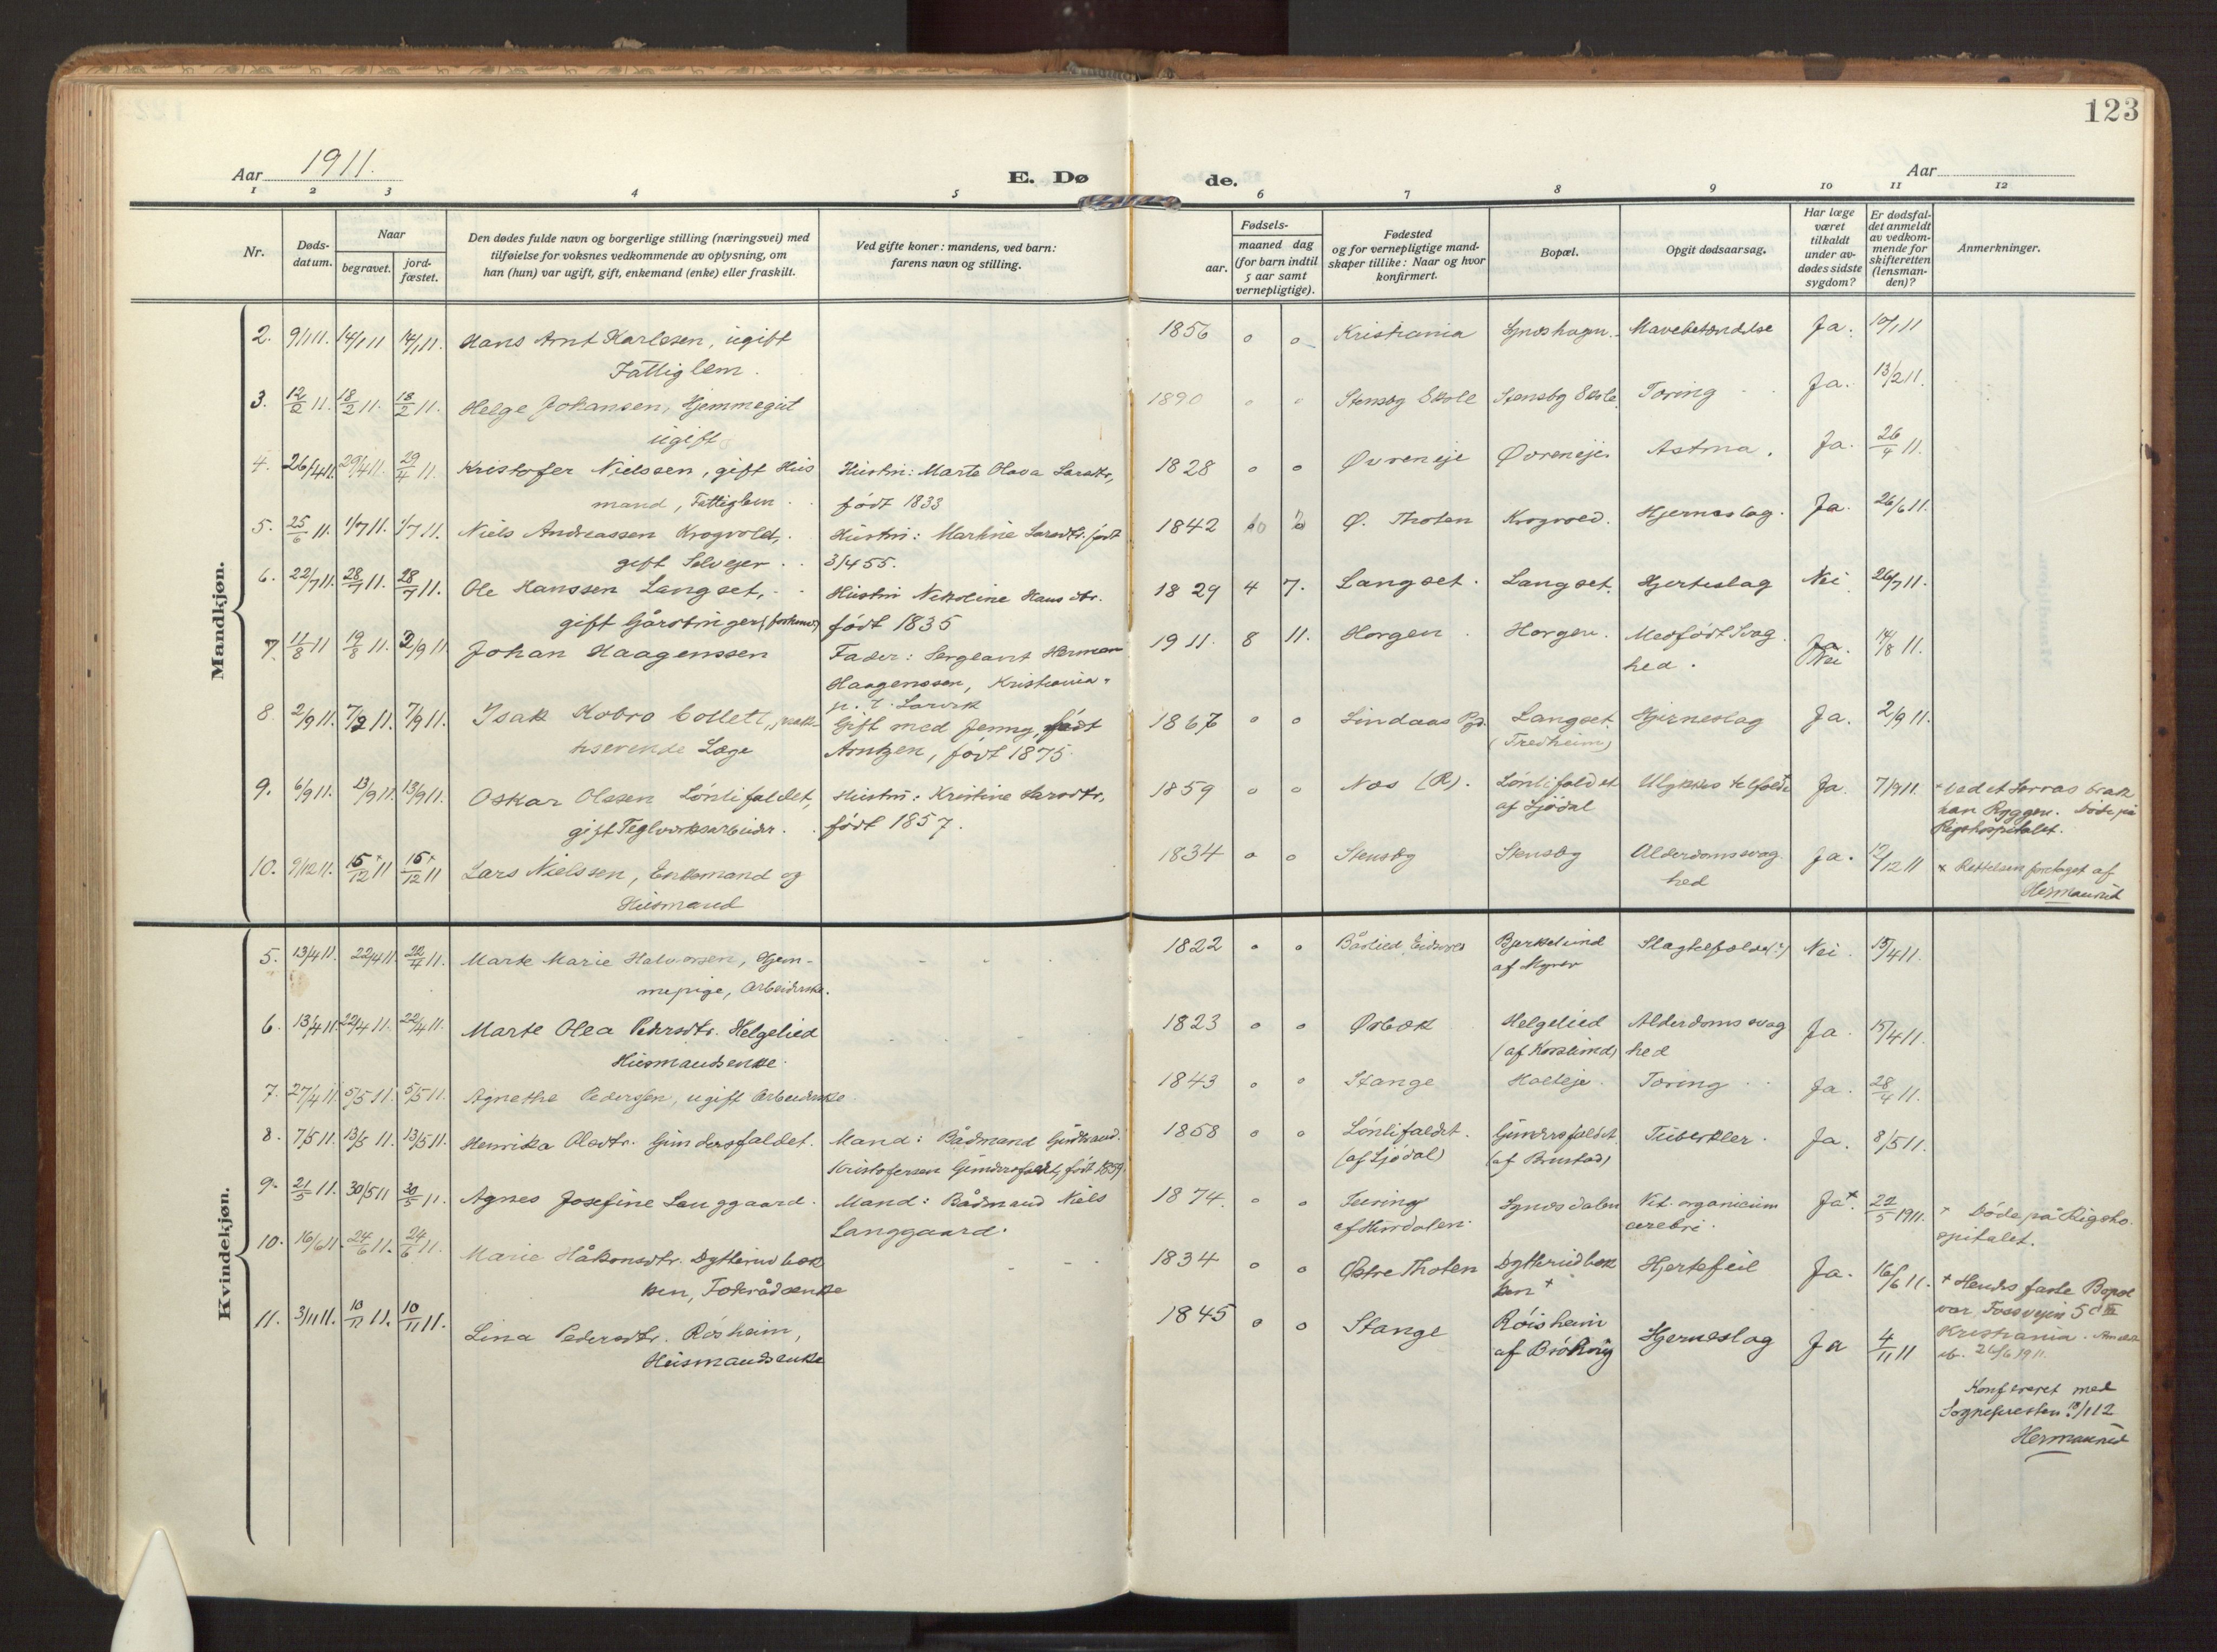 123
Aar 1911.
E. Dø
de.
Aar
1 2 3 4 5 6 7 8 9 10 11 12
Nr.
Døds-
datum.
Naar
begravet.
jord-
fæstet.
Den dødes fulde navn og borgerlige stilling (næringsvei) med
tilføielse for voksnes vedkommende av oplysning, om
han (hun) var ugift, gift, enkemand (enke) eller fraskilt.
Ved gifte koner: mandens, ved barn:
farens navn og stilling.
Fødsels-
aar.
maaned dag
(for barn indtil
5 aar samt
vernepligtige).
Fødested
og for vernepligtige mand-
skaper tillike: Naar og hvor
konfirmert.
Bopæl.
Opgit dødsaarsag.
Har læge
været
tilkaldt
under av-
dødes sidste
sygdom?
Er dødsfal-
det anmeldt
av vedkom-
mende for
skifteretten
(lensman-
den)?
Anmerkninger.
Mandkjøn.
2. 9/1 11. 14/1 11 14/1 11. Hans Arnt Karlsen, ugift 1856 o o Kristiania Mavebetændelse Ja. 10/1 11
Fattiglem.
3. 12/2 11. 18/2 11. 18/2 11. Helge Johansen, Hjemmegut 1890 o o Stensby Skole Stensby Skole Tæring Ja. 13/2 11.
ugift
4. 26/4 11. 29/4 11. 29/4 11. Kristofer Nielssen, gift Hus Hustru: Marte Olava Larsdtr, 1828 o o Øvreneje Øvreneje. Astma. Ja. 26/4 11.
mand, Fattiglem født 1833
5. 25/6 11. 1/7 11. 1/7 11. Niels Andreassen Krogvold, Hustru: Martine Larsdtr. født 1842 10 Ø. Thoten Krogvold. Hjerneslag. Ja. 26/6 11.
gift Selveier 3/4 55.
6. 22/7 11. 28/7 11. 28/7 11. Ole Hanssen Langset, Hustru Nikoline Hansdtr. 1829 4 7. Langset. Langset. Hjerteslag Nei 26/7 11.
gift født 1835
7. 11/8 11 19/8 11. 2/9 11 Johan Haagenssen Fader: Sergeant Herman 1911. 8 11. Horgen Horgen. Medfødt Svag Ja 14/8 11.
Haagenssen, Kristiania hed. Nei
p. t. Larvik
8. 2/9 11. 7/9 11. 7/9 11. Isak Kobro Collett, prak- Gift med Jenny, født 1867 o o Lindaas Pgd. Langset Hjerneslag Ja. 2/9 11.
tiserende Læge Arntzen, født 1875. (Fredheim)
9. 6/9 11. 13/9 11. 13/9 11. Oskar Olssen Lönlifaldet, Hustru: Kristine Larsdtr, 1859 o o Næs (R). Lönlifaldet Ulykkestilfælde Ja. 7/9 11. + Ved et Jernras brak
gift Teglverksarbeider. født 1857. af Ljödal han Ryggen. Døde på
Rigshospitalet.
10. 9/12 11. 15/12 11 15/12 11 Lars Nielssen, Enkemand og 1834 o o Stensby Stensby Alderdomssvag Ja. 12/12 11 x Rettelsen foretaget af
Husmand hed Hermanrud
Kvindekjøn.
5. 13/4 11. 22/4 11. 22/4 11. Marte Marie Halvorsen, Hjem- 1822 o o Båslied, Eidsvold Bjerkelund Slagtilfælde(?) Nei. 15/4 11.
mepige, Arbeiderske. af Myrer
6. 13/4 11. 22/4 11. 22/4 11. Marte Olea Pedersdtr. Helgelied 1823 o o Ørbæk Helgelied Alderdomssvag Ja. 15/4 11.
Husmandsenke. (af Korslund) hed
7. 27/4 11. 5/5 11. 5/5 11. Agnethe Pederssen, ugift Arbeiderske 1843 o o Stange Holteje. Tæring Ja. 28/4 11.
8. 7/5 11. 13/5 11. 13/5 11. Henrika Olsdtr. Gundersfaldet. Mand: Bådmand Gudbrand. 1858 o o Lönlifaldet. Gundersfaldet. Tuberkler. Ja. 8/5 11.
Kristofersen Gundersfaldet, født 1859. (af Ljödal) (af Brustad)
9. 21/5 11. 30/5 11 30/5 11. Agnes Josefine Langgaard. Mand: Bådmand Niels 1874. o o Lynesdalen Vit. organicum Ja.+ 22/5 1911. + Døde på Rigsho-
Langgaard. af Hurdalen. cerebri. spitalet.
10. 16/6 11. 24/6 11. 24/6 11. Marie Håkonsdtr. Dytterudbæk 1834 o o Østre Thoten Dytterudbæk Hjertefeil Ja. 16/6 11. + Hendes faste Bopæl
ken, Forkrådsenke ken+ var Fossveien 5
Kristiania.
26/6 1911.
11. 3/11 11. 10/11 11. 10/11 11. Lina Pedersdtr. Rösheim, 1845 o o Stange Röisheim Hjerneslag Ja 4/11 11
Husmandsenke af Bröhaug
Konfereret med
Sognepresten 18/1 12
Hermanrud